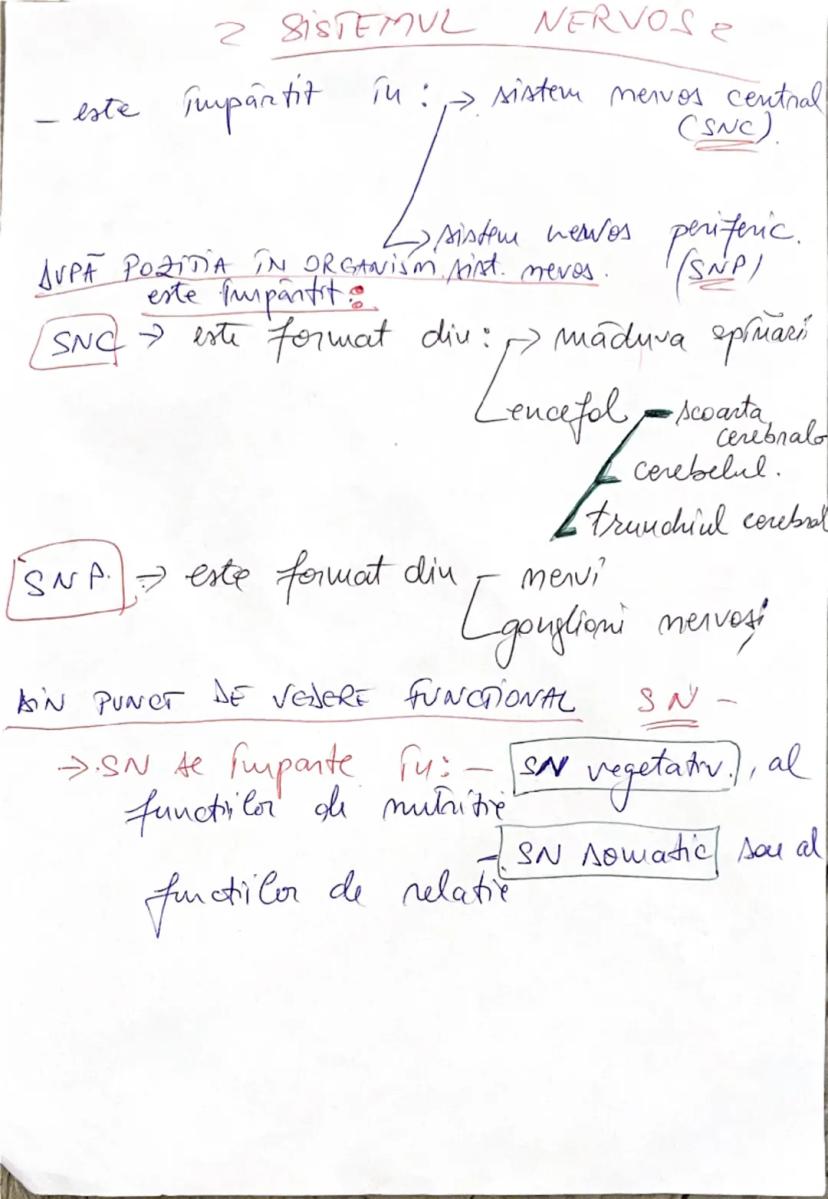 SISTEMUL NERVOS
- este împărtit în: → sistem nervos central
(SNC)
→ sistem nervos periferic.
(SNP)
DUPĂ POZITIA ÎN ORGANISM, sist. nervos.
este împărtit:
SNC → este format din: → măduva spinării
encefal - scoarta
cerebrala
- cerebelul.
trunchiul cerebral
SNP. → este format din - nervi
ganglioni nervoși
DIN PUNCT DE VEDERE FUNCTIONAL SN -
→ SN se împarte în: - SN vegetativ., al
functiilor de nutritie
- SN somatic sau al
functiilor de relatie